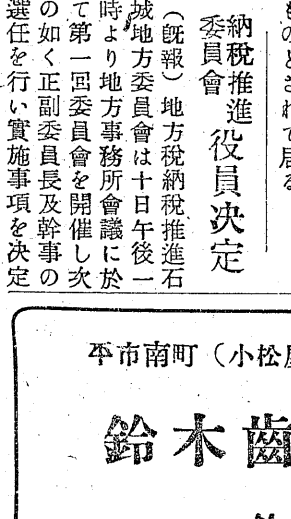 ものとされて居る
納税推進
委員會
役員决定
（既報）地方税納税推進石
城地方委員會は十日午後一
時より地方事務所會議に於
て第一回委員會を開催し次
の如く正副委員長及幹事の
選任を行い實施事項を決定
平市南町（小松屋
鈴木齒